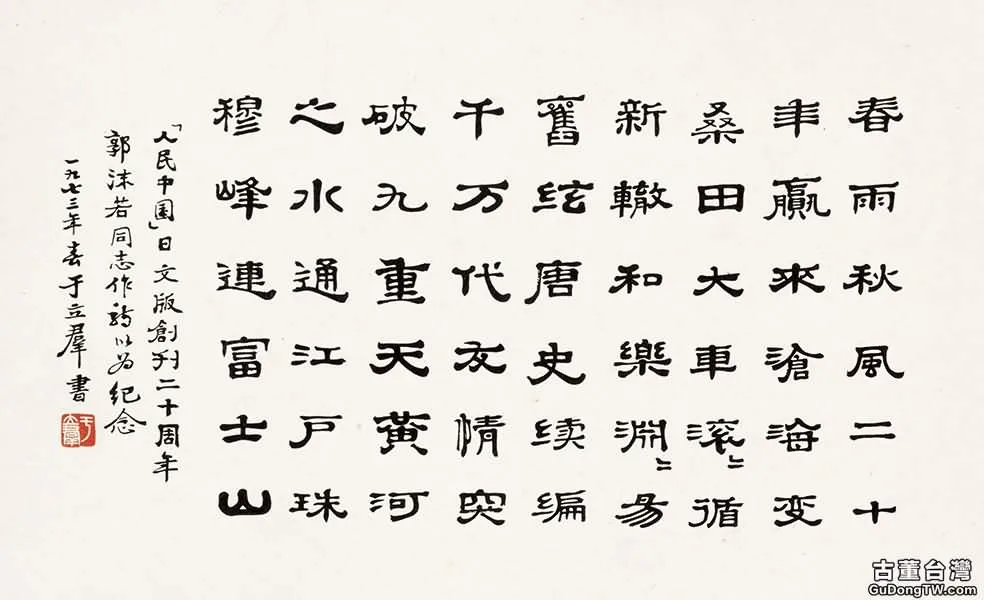 春雨秋風二十
年贏來滄海变
桑田大車滚〻循
新轍和樂淵〻易
舊絃唐史续编
千万代友情突
破九重天黄河
之水通江户珠
穆峰連富士山
「人民中国」日文版創刊二十周年
郭沫若同志作詩以为纪念
一九七三年春于立羣書
古董台灣
GuDongTW.com